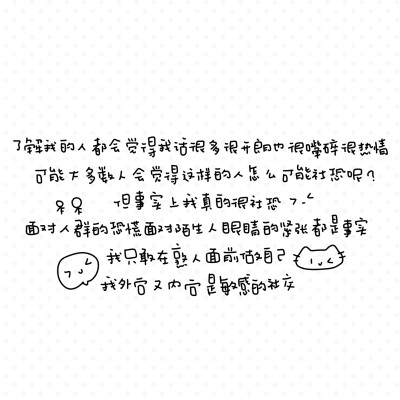 了解我的人都会觉得我话很多很开朗也很嘴碎很热情
可能大多数人会觉得这样的人怎么可能社恐呢？
但事实上我真的很社恐
面对人群的恐慌面对陌生人眼睛的紧张都是事实
我只敢在熟人面前做自己
我外向又内向是敏感的社交